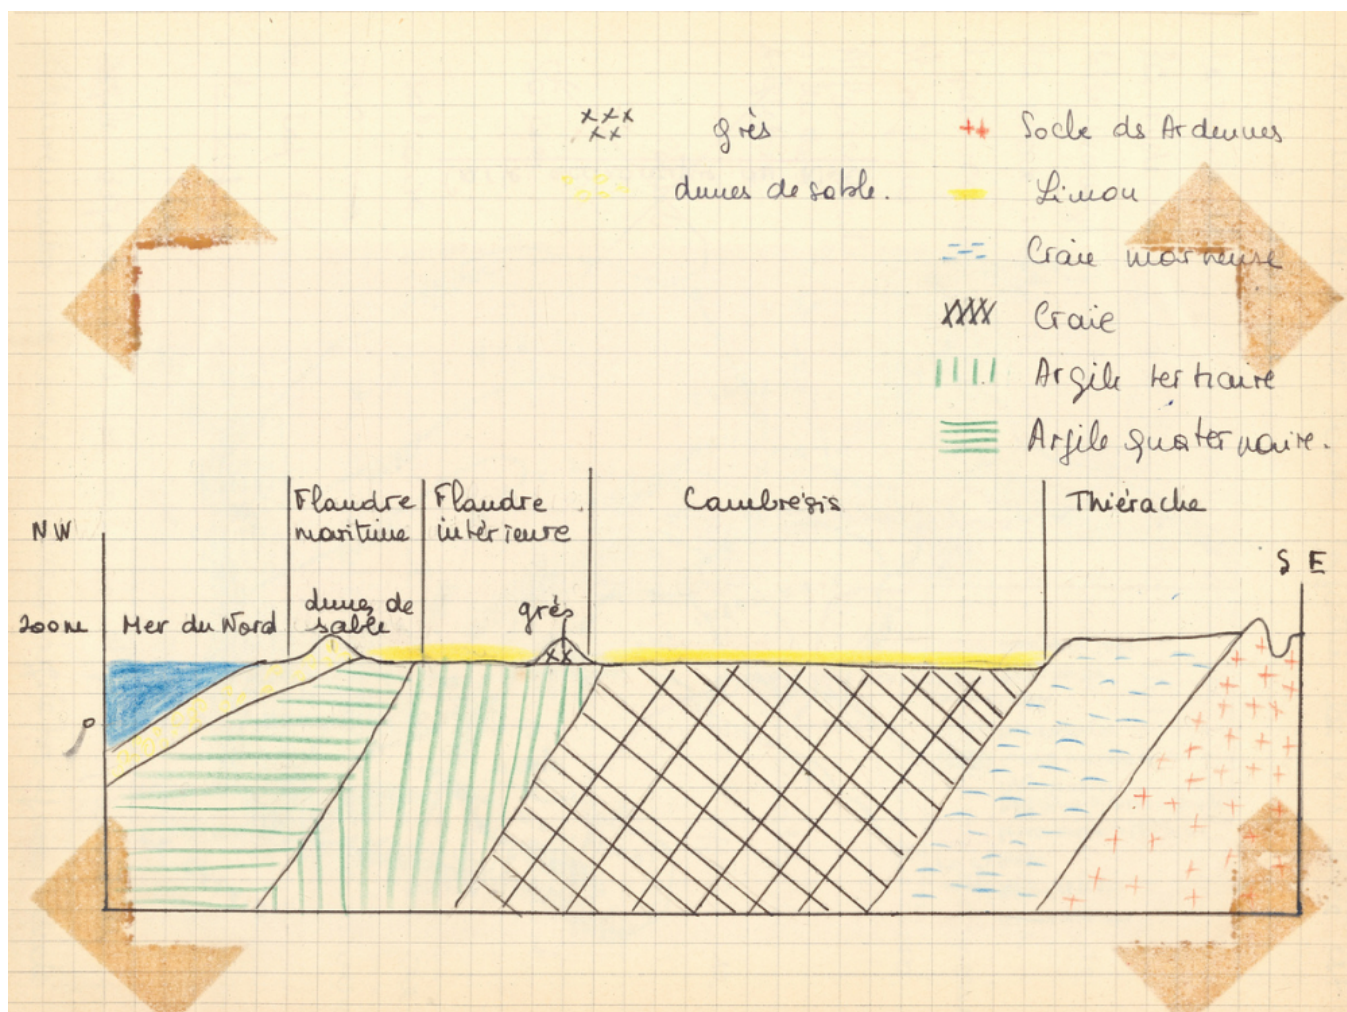 grès
dunes de sable.
Socle ds Ardennes
Limon
Craie marneuse
Craie
Argile tertiaire
Argile quaternaire.
NW
Flandre
maritime
Flandre
intérieure
Cambrésis
Thiérache
S E
200m
Mer du Nord
dunes de
sable
grès
0